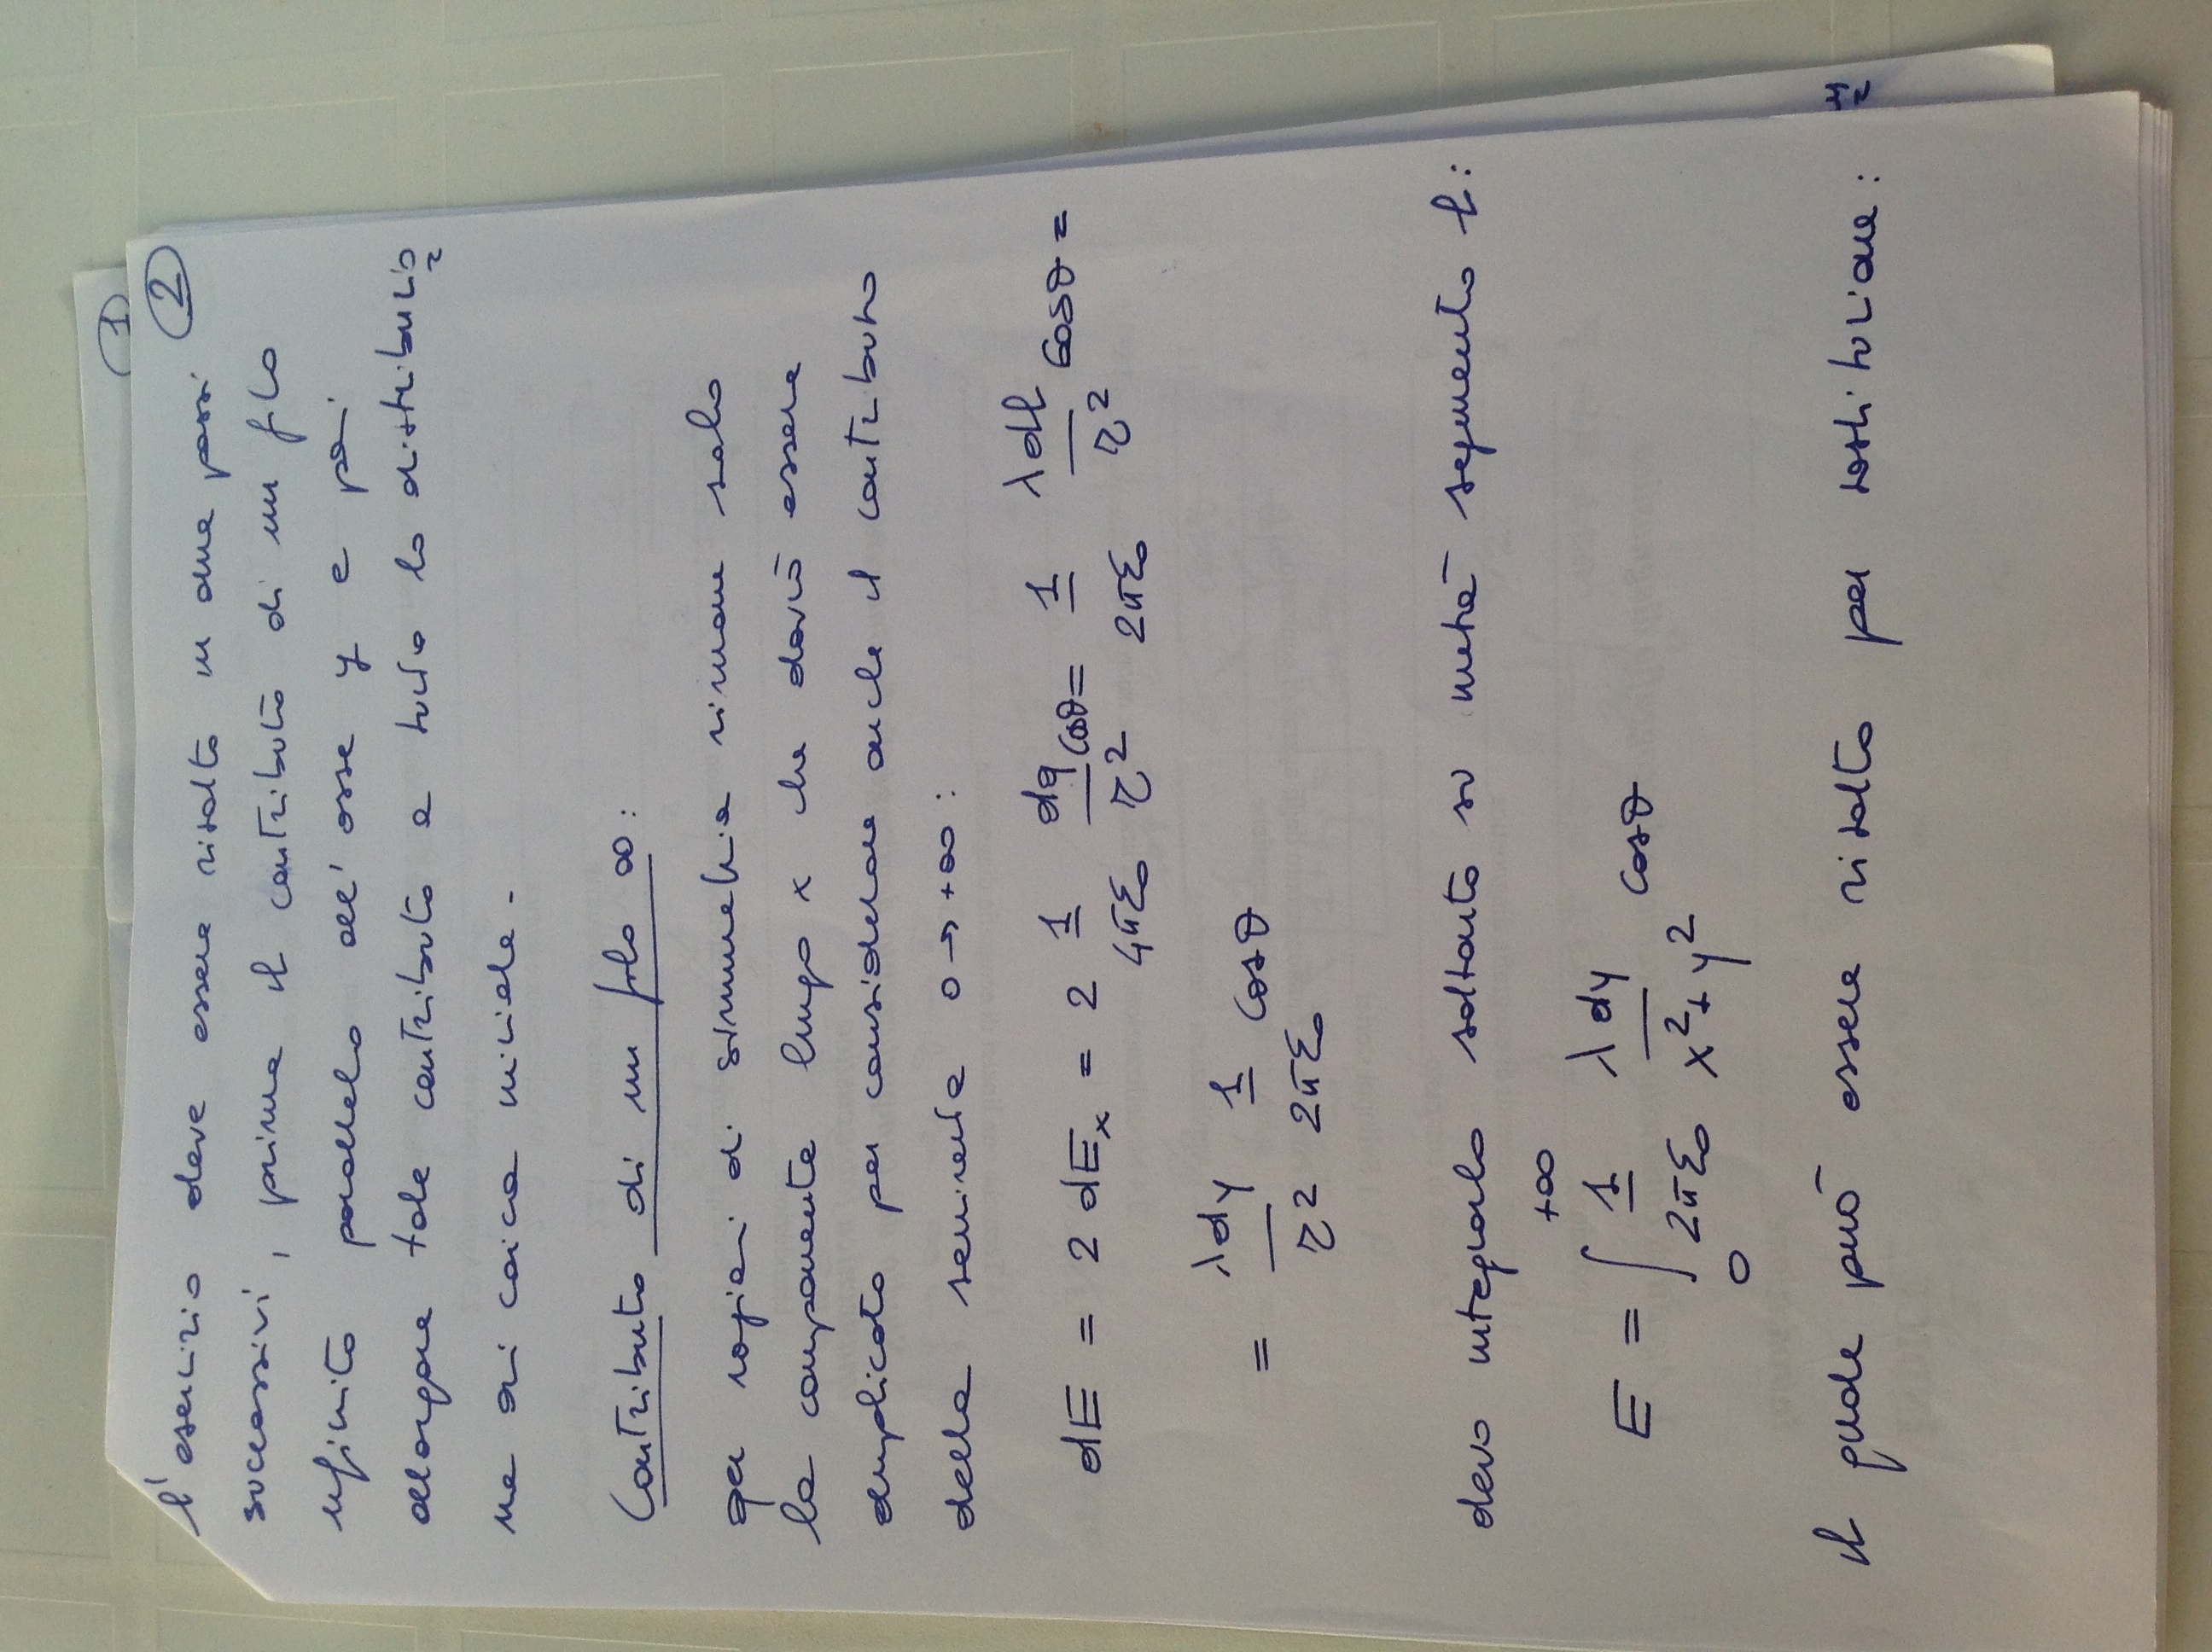 1
2
l'esercizio deve essere risolto in due passi
successivi, prima il contributo di un filo
infinito parallelo all'asse y e poi
allargare tale contributo a tutta la distribuzio
ne di carica iniziale.
Contributo di un filo ∞:
per ragioni di simmetria rimane solo
la componente lungo x che dovrà essere
duplicata per considerare anche il contributo
della semiretta 0 → +∞:
dE = 2 dEₓ = 2 1/4πε₀ dq/r² cosθ = 1/2πε₀ λdl/r² cosθ =
= λdy/r² 1/2πε₀ cosθ
devo integrarlo soltanto su metà segmento l:
E = ∫₀^+∞ 1/2πε₀ λdy/x²+y² cosθ
il quale può essere risolto per sostituzione: